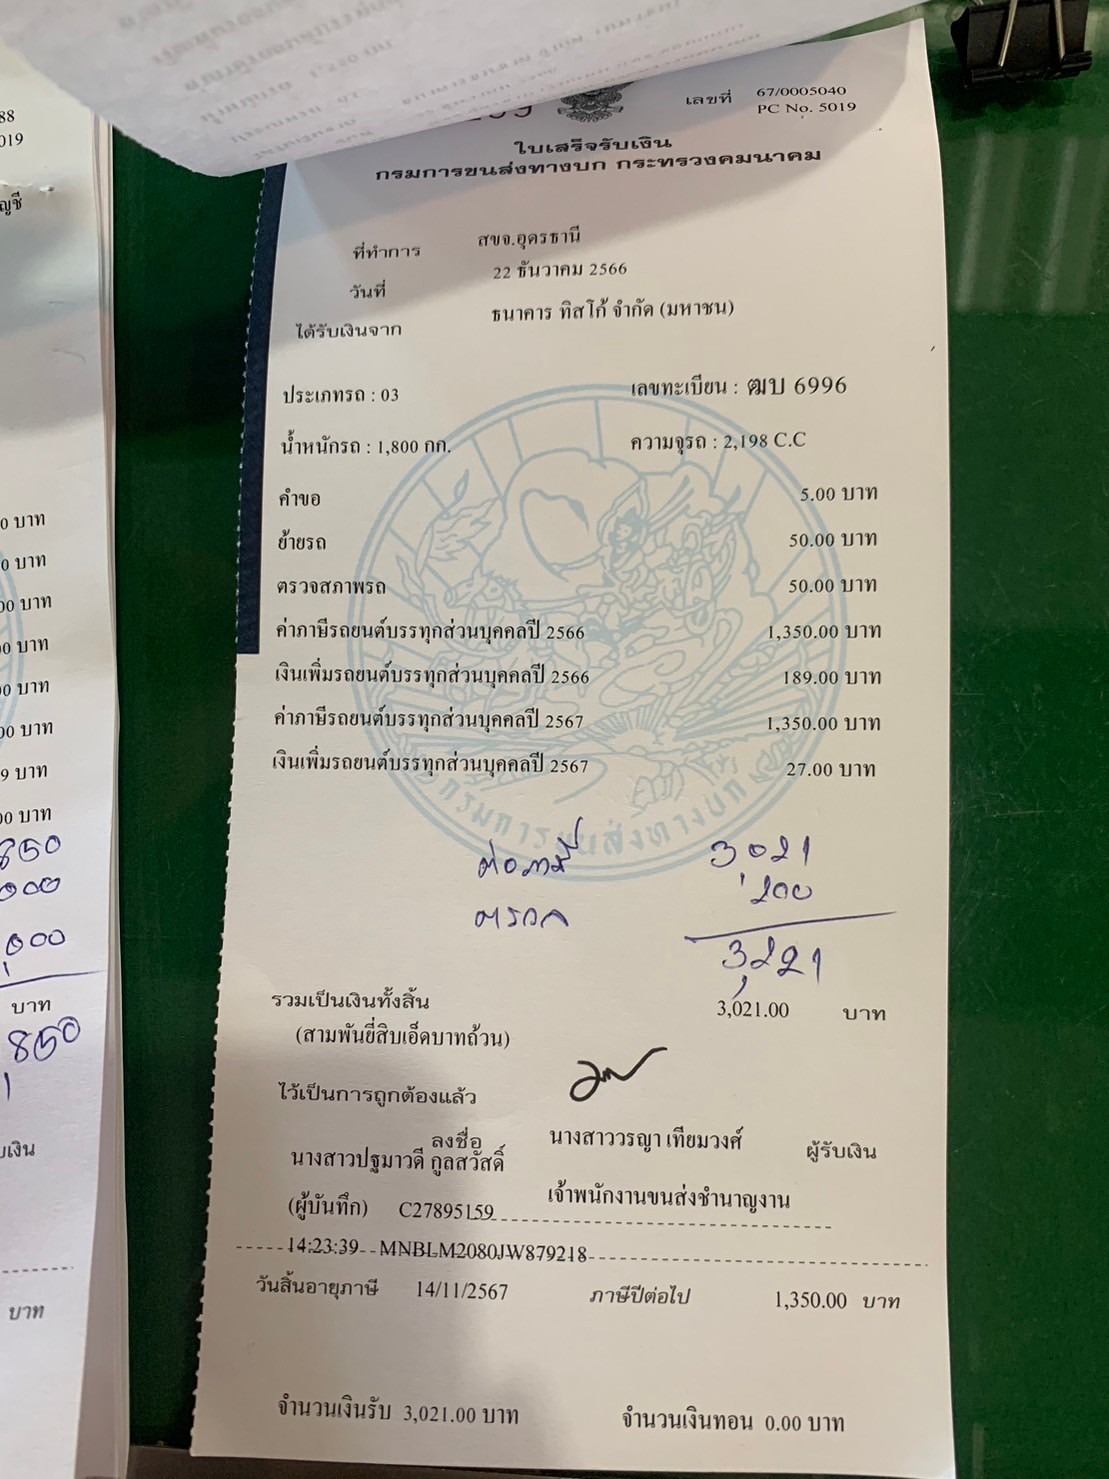 88
019
ญชี
เลขที่ 67/0005040
PC No. 5019
ใบเสร็จรับเงิน
กรมการขนส่งทางบก กระทรวงคมนาคม
ที่ทำการ สขจ.อุดรธานี
วันที่ 22 ธันวาคม 2566
ได้รับเงินจาก ธนาคาร ทิสโก้ จำกัด (มหาชน)
ประเภทรถ : 03 เลขทะเบียน : ฒบ 6996
น้ำหนักรถ : 1,800 กก. ความจุรถ : 2,198 C.C
คำขอ 5.00 บาท
ย้ายรถ 50.00 บาท
ตรวจสภาพรถ 50.00 บาท
ค่าภาษีรถยนต์บรรทุกส่วนบุคคลปี 2566 1,350.00 บาท
เงินเพิ่มรถยนต์บรรทุกส่วนบุคคลปี 2566 189.00 บาท
ค่าภาษีรถยนต์บรรทุกส่วนบุคคลปี 2567 1,350.00 บาท
เงินเพิ่มรถยนต์บรรทุกส่วนบุคคลปี 2567 27.00 บาท
กรมการขนส่งทางบก
ต่อภาษี 3,021
ตรวจ 200
3,221
รวมเป็นเงินทั้งสิ้น 3,021.00 บาท
(สามพันยี่สิบเอ็ดบาทถ้วน)
ไว้เป็นการถูกต้องแล้ว
ลงชื่อ นางสาววรญา เทียมวงศ์ ผู้รับเงิน
นางสาวปฐมาวดี กูลสวัสดิ์
(ผู้บันทึก) C27895159 เจ้าพนักงานขนส่งชำนาญงาน
14:23:39 MNBLM2080JW879218
วันสิ้นอายุภาษี 14/11/2567 ภาษีปีต่อไป 1,350.00 บาท
จำนวนเงินรับ 3,021.00 บาท จำนวนเงินทอน 0.00 บาท
0 บาท
0 บาท
00 บาท
00 บาท
00 บาท
00 บาท
9 บาท
00 บาท
850
000
,000
บาท
850
บเงิน
บาท